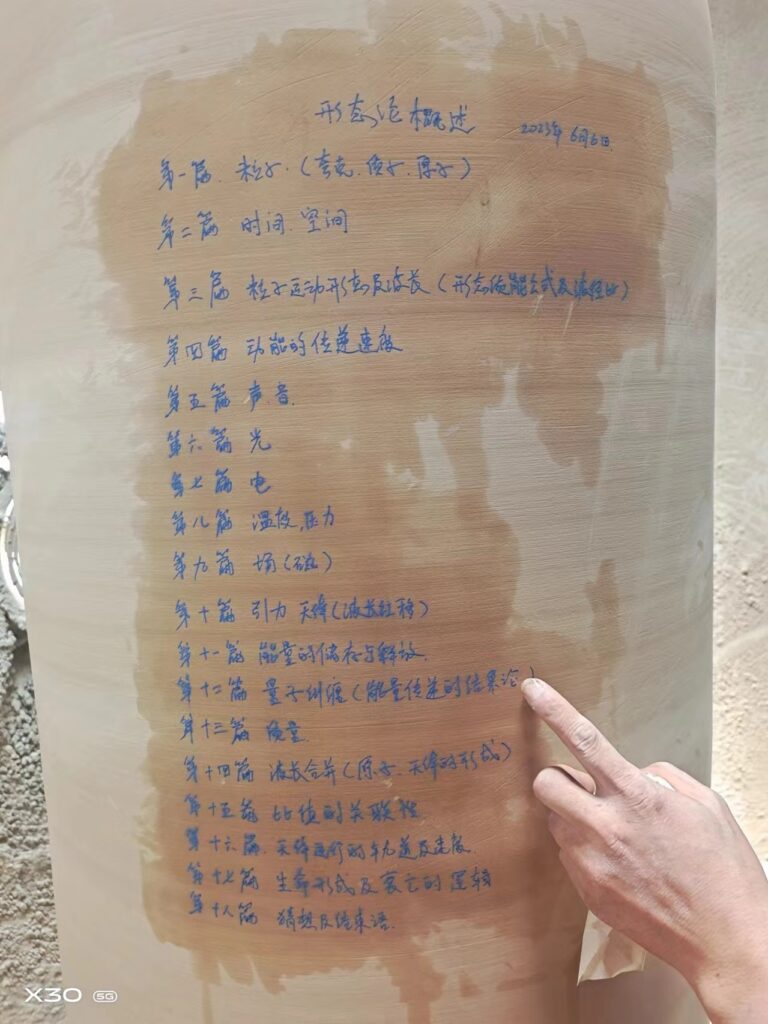 形态论概述 2023年6月6日.
第一篇. 粒子.(夸克.质子.原子)
第二篇 时间.空间
第三篇 粒子运动形态及波长(形态质能公式及波径比)
第四篇 动能的传递速度
第五篇 声.音.
第六篇 光
第七篇 电
第八篇 温度,压力
第九篇 场(磁)
第十篇 引力 天体(波长红移)
第十一篇 能量的储存与释放.
第十二篇 量子纠缠(能量传递的结果论)
第十三篇 质量.
第十四篇 波长合并(原子.天体的形成)
第十五篇 比值的关联性
第十六篇. 天体运行的轨道及速度.
第十七篇 生命形成及衰亡的逻辑
第十八篇 猜想及结束语.
X30 5G